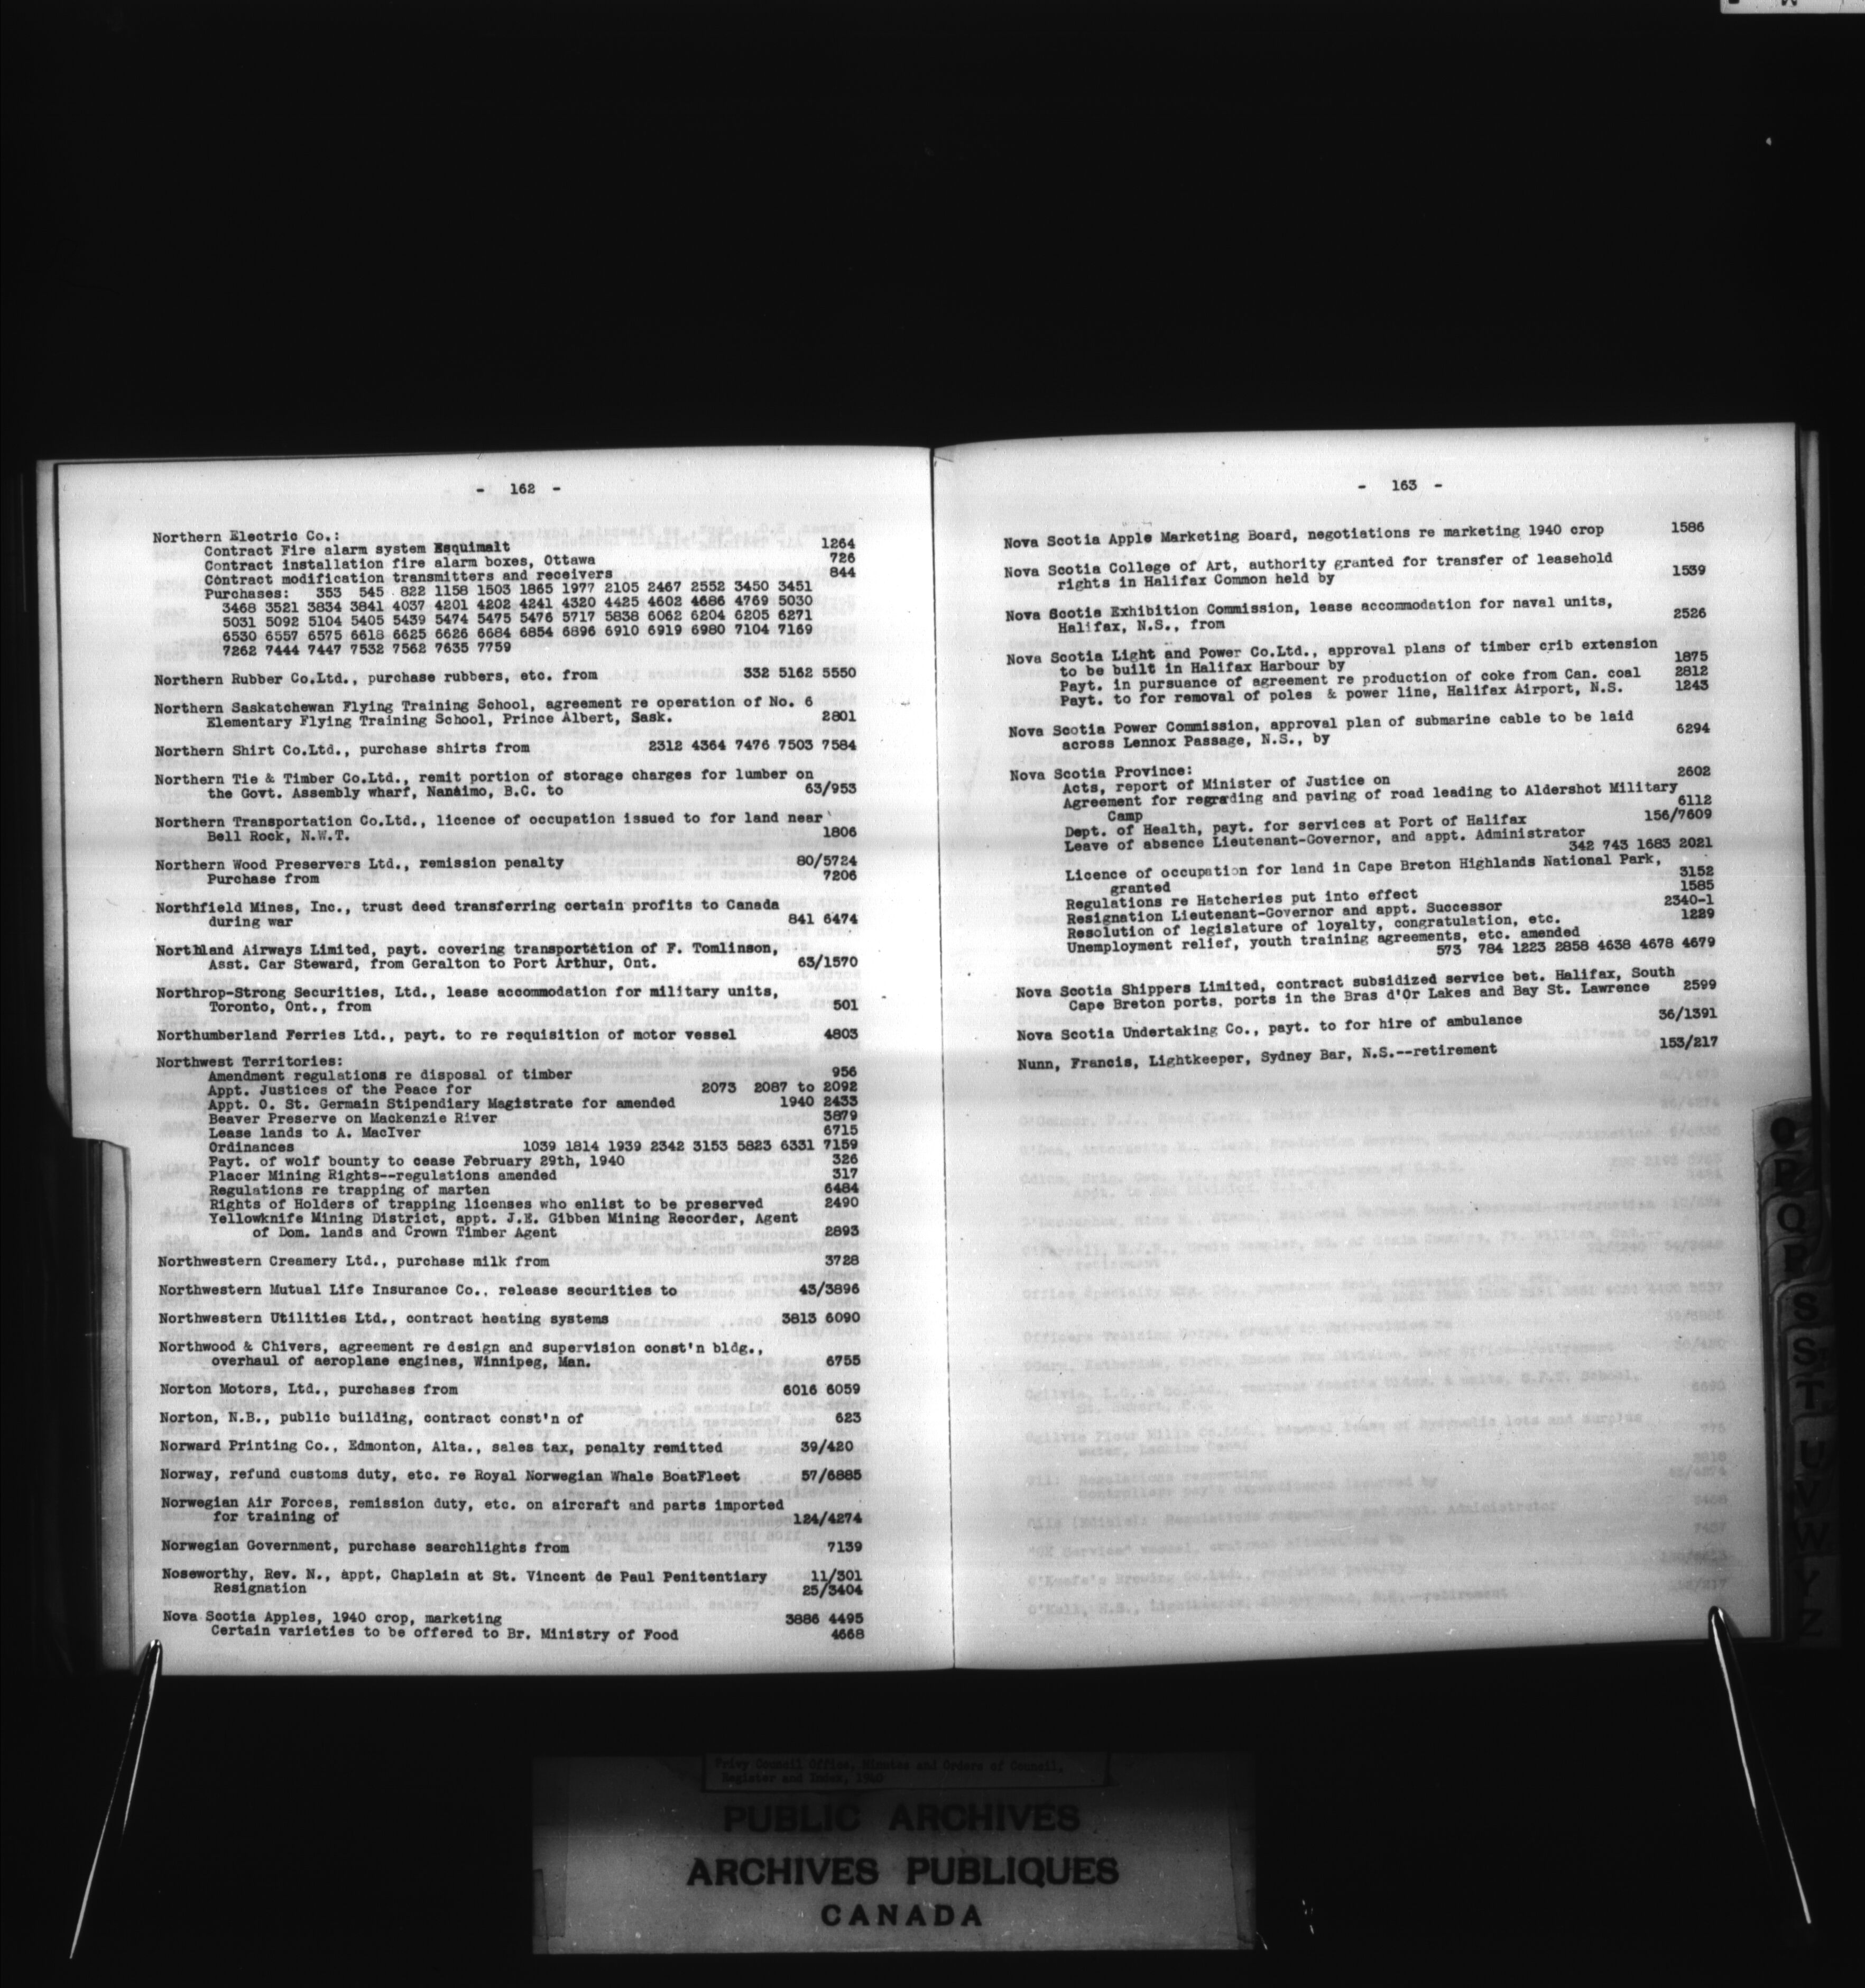 - 162 -
Northern Electric Co.:
Contract Fire alarm system Esquimalt 1264
Contract installation fire alarm boxes, Ottawa 726
Contract modification transmitters and receivers 844
Purchases: 353 545 822 1158 1503 1865 1977 2105 2467 2552 3450 3451
3468 3521 3834 3841 4037 4201 4202 4241 4320 4425 4602 4686 4769 5030
5031 5092 5104 5405 5439 5474 5475 5476 5717 5838 6062 6204 6205 6271
6530 6557 6575 6618 6625 6626 6684 6854 6896 6910 6919 6980 7104 7169
7262 7444 7447 7532 7562 7635 7759
Northern Rubber Co.Ltd., purchase rubbers, etc. from 332 5162 5550
Northern Saskatchewan Flying Training School, agreement re operation of No. 6
Elementary Flying Training School, Prince Albert, Sask. 2801
Northern Shirt Co.Ltd., purchase shirts from 2312 4364 7476 7503 7584
Northern Tie & Timber Co.Ltd., remit portion of storage charges for lumber on
the Govt. Assembly wharf, Nanaimo, B.C. to 63/953
Northern Transportation Co.Ltd., licence of occupation issued to for land near
Bell Rock, N.W.T. 1806
Northern Wood Preservers Ltd., remission penalty 80/5724
Purchase from 7206
Northfield Mines, Inc., trust deed transferring certain profits to Canada
during war 841 6474
Northland Airways Limited, payt. covering transportation of F. Tomlinson,
Asst. Car Steward, from Geralton to Port Arthur, Ont. 63/1570
Northrop-Strong Securities, Ltd., lease accommodation for military units,
Toronto, Ont., from 501
Northumberland Ferries Ltd., payt. to re requisition of motor vessel 4803
Northwest Territories:
Amendment regulations re disposal of timber 956
Appt. Justices of the Peace for 2073 2087 to 2092
Appt. O. St. Germain Stipendiary Magistrate for amended 1940 2433
Beaver Preserve on Mackenzie River 3879
Lease lands to A. MacIver 6715
Ordinances 1039 1814 1939 2342 3153 5823 6331 7159
Payt. of wolf bounty to cease February 29th, 1940 326
Placer Mining Rights--regulations amended 317
Regulations re trapping of marten 6484
Rights of Holders of trapping licenses who enlist to be preserved 2490
Yellowknife Mining District, appt. J.E. Gibben Mining Recorder, Agent
of Dom. lands and Crown Timber Agent 2893
Northwestern Creamery Ltd., purchase milk from 3728
Northwestern Mutual Life Insurance Co., release securities to 43/3896
Northwestern Utilities Ltd., contract heating systems 3813 6090
Northwood & Chivers, agreement re design and supervision const'n bldg.,
overhaul of aeroplane engines, Winnipeg, Man. 6755
Norton Motors, Ltd., purchases from 6016 6059
Norton, N.B., public building, contract const'n of 623
Norward Printing Co., Edmonton, Alta., sales tax, penalty remitted 39/420
Norway, refund customs duty, etc. re Royal Norwegian Whale BoatFleet 57/6885
Norwegian Air Forces, remission duty, etc. on aircraft and parts imported
for training of 124/4274
Norwegian Government, purchase searchlights from 7139
Noseworthy, Rev. N., appt. Chaplain at St. Vincent de Paul Penitentiary 11/301
Resignation 25/3404
Nova Scotia Apples, 1940 crop, marketing 3886 4495
Certain varieties to be offered to Br. Ministry of Food 4668
- 163 -
Nova Scotia Apple Marketing Board, negotiations re marketing 1940 crop 1586
Nova Scotia College of Art, authority granted for transfer of leasehold
rights in Halifax Common held by 1539
Nova Scotia Exhibition Commission, lease accommodation for naval units,
Halifax, N.S., from 2526
Nova Scotia Light and Power Co.Ltd., approval plans of timber crib extension
to be built in Halifax Harbour by 1875
Payt. in pursuance of agreement re production of coke from Can. coal 2812
Payt. to for removal of poles & power line, Halifax Airport, N.S. 1243
Nova Scotia Power Commission, approval plan of submarine cable to be laid
across Lennox Passage, N.S., by 6294
Nova Scotia Province:
Acts, report of Minister of Justice on 2602
Agreement for regrading and paving of road leading to Aldershot Military
Camp 6112
Dept. of Health, payt. for services at Port of Halifax 156/7609
Leave of absence Lieutenant-Governor, and appt. Administrator
342 743 1683 2021
Licence of occupation for land in Cape Breton Highlands National Park,
granted 3152
Regulations re Hatcheries put into effect 1585
Resignation Lieutenant-Governor and appt. Successor 2340-1
Resolution of legislature of loyalty, congratulation, etc. 1229
Unemployment relief, youth training agreements, etc. amended
573 784 1223 2858 4638 4678 4679
Nova Scotia Shippers Limited, contract subsidized service bet. Halifax, South
Cape Breton ports, ports in the Bras d'Or Lakes and Bay St. Lawrence 2599
Nova Scotia Undertaking Co., payt. to for hire of ambulance 36/1391
Nunn, Francis, Lightkeeper, Sydney Bar, N.S.--retirement 153/217
Q
P
Q
R
S
S
T
U
V
W
Y
Z
Privy Council Office, Minutes and Orders of Council,
Register and Index, 1940
PUBLIC ARCHIVES
ARCHIVES PUBLIQUES
CANADA